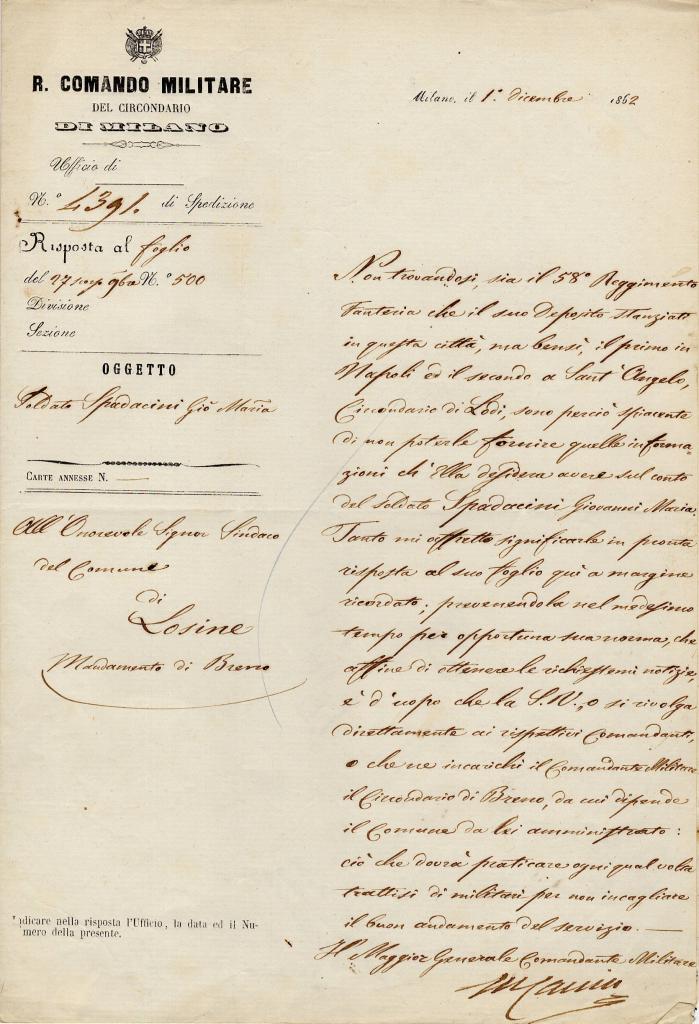 R. COMANDO MILITARE
DEL CIRCONDARIO
DI MILANO
Ufficio di
N.° 4391. di Spedizione
Risposta al foglio
del 27 scorso 9bre N.° 500
Divisione
Sezione
OGGETTO
Soldato Spadacini Gio Maria
CARTE ANNESSE N.
All'Onorevole Signor Sindaco
del Comune
di
Losine
Mandamento di Breno
Indicare nella risposta l'Ufficio, la data ed il Nu-
mero della presente.
Milano, il 1° dicembre 1862
Non trovandosi, sia il 58° Reggimento
Fanteria che il suo Deposito stanziati
in questa città, ma bensì, il primo in
Napoli ed il secondo a Sant'Angelo,
Circondario di Lodi, sono perciò spiacente
di non poterle fornire quelle informa-
zioni ch'Ella desidera avere sul conto
del soldato Spadacini Giovanni Maria.
Tanto mi affretto significarle in pronta
risposta al suo foglio quì a margine
ricordato; prevenendola nel medesimo
tempo per opportuna sua norma, che
affine di ottenere le richiestemi notizie,
è d'uopo che la S.V., o si rivolga
direttamente ai rispettivi Comandanti,
o che ne incarichi il Comandante Militare
il Circondario di Breno, da cui dipende
il Comune da lei amministrato:
ciò che dovrà praticare ogni qual volta
trattisi di militari per non incagliare
il buon andamento del servizio.
Il Maggior Generale Comandante Militare